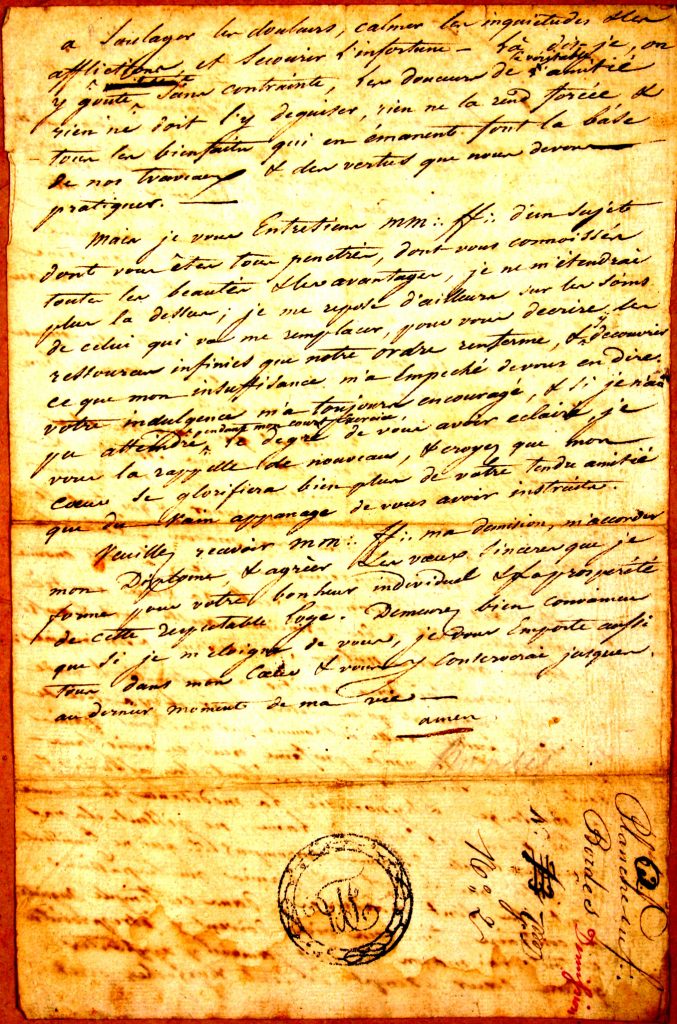 a Soulager les douleurs, calmer les inquietudes & les
afflictions, et Secourir l'infortune — Là dis-je, on
y goûte Sans contrainte, les douceurs de la véritable amitié
rien ne doit l'y deguiser, rien ne la rend forcée &
tous les bienfaits qui en émanent font la báse
de nos travaux & des vertus que nous devons
pratiquer. —
Mais je vous Entretiens MM∴ ff∴ d'un Sujet
dont vous êtes tous penetrés, dont vous connoissés
toutes les beautés & les avantages, je ne m'étendrai
plus la dessus; je me repose d'ailleurs sur les soins
de celui qui va me remplacer, pour vous decrire les
ressources infinies que notre ordre renferme, & decouvrir
ce que mon insuffisance m'a Empeché de vous en dire.
votre indulgence m'a toujours encouragé, & Si je n'ai
pu attendre pendant mon cours le degré de vous avoir eclairé, je
vous la rappelle de nouveau, & croyez que mon
Cœur Se glorifiera bien plus de votre tendre amitié
que du Vain appanage de vous avoir instruits.
Veuillez recevoir MM∴ ff∴ ma demision, m'accorder
mon Diplome, & agréer Les vœux Sinceres que je
forme pour votre bonheur individuel & la prosperité
de cette respectable Loge. Demeurez bien convaincus
que Si je m'eloigne de vous, je vous Emporte aussi
tous dans mon Cœur & vous y Conserverai jusques
au dernier moment de ma vie —
amen
Planche du f∴
Bardés Demission
No: 2